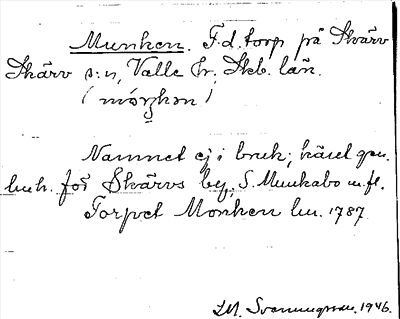 Munken. F.d. torp på Skärv
Skärv s:n, Valle hr, Skb. län.
(móŋkən)
Namnet ej i bruk; känt gm.
huk. för Skärvs by, S. Munkabo m.fl.
Torpet Monken hu. 1787
M. Svanungsson. 1946.